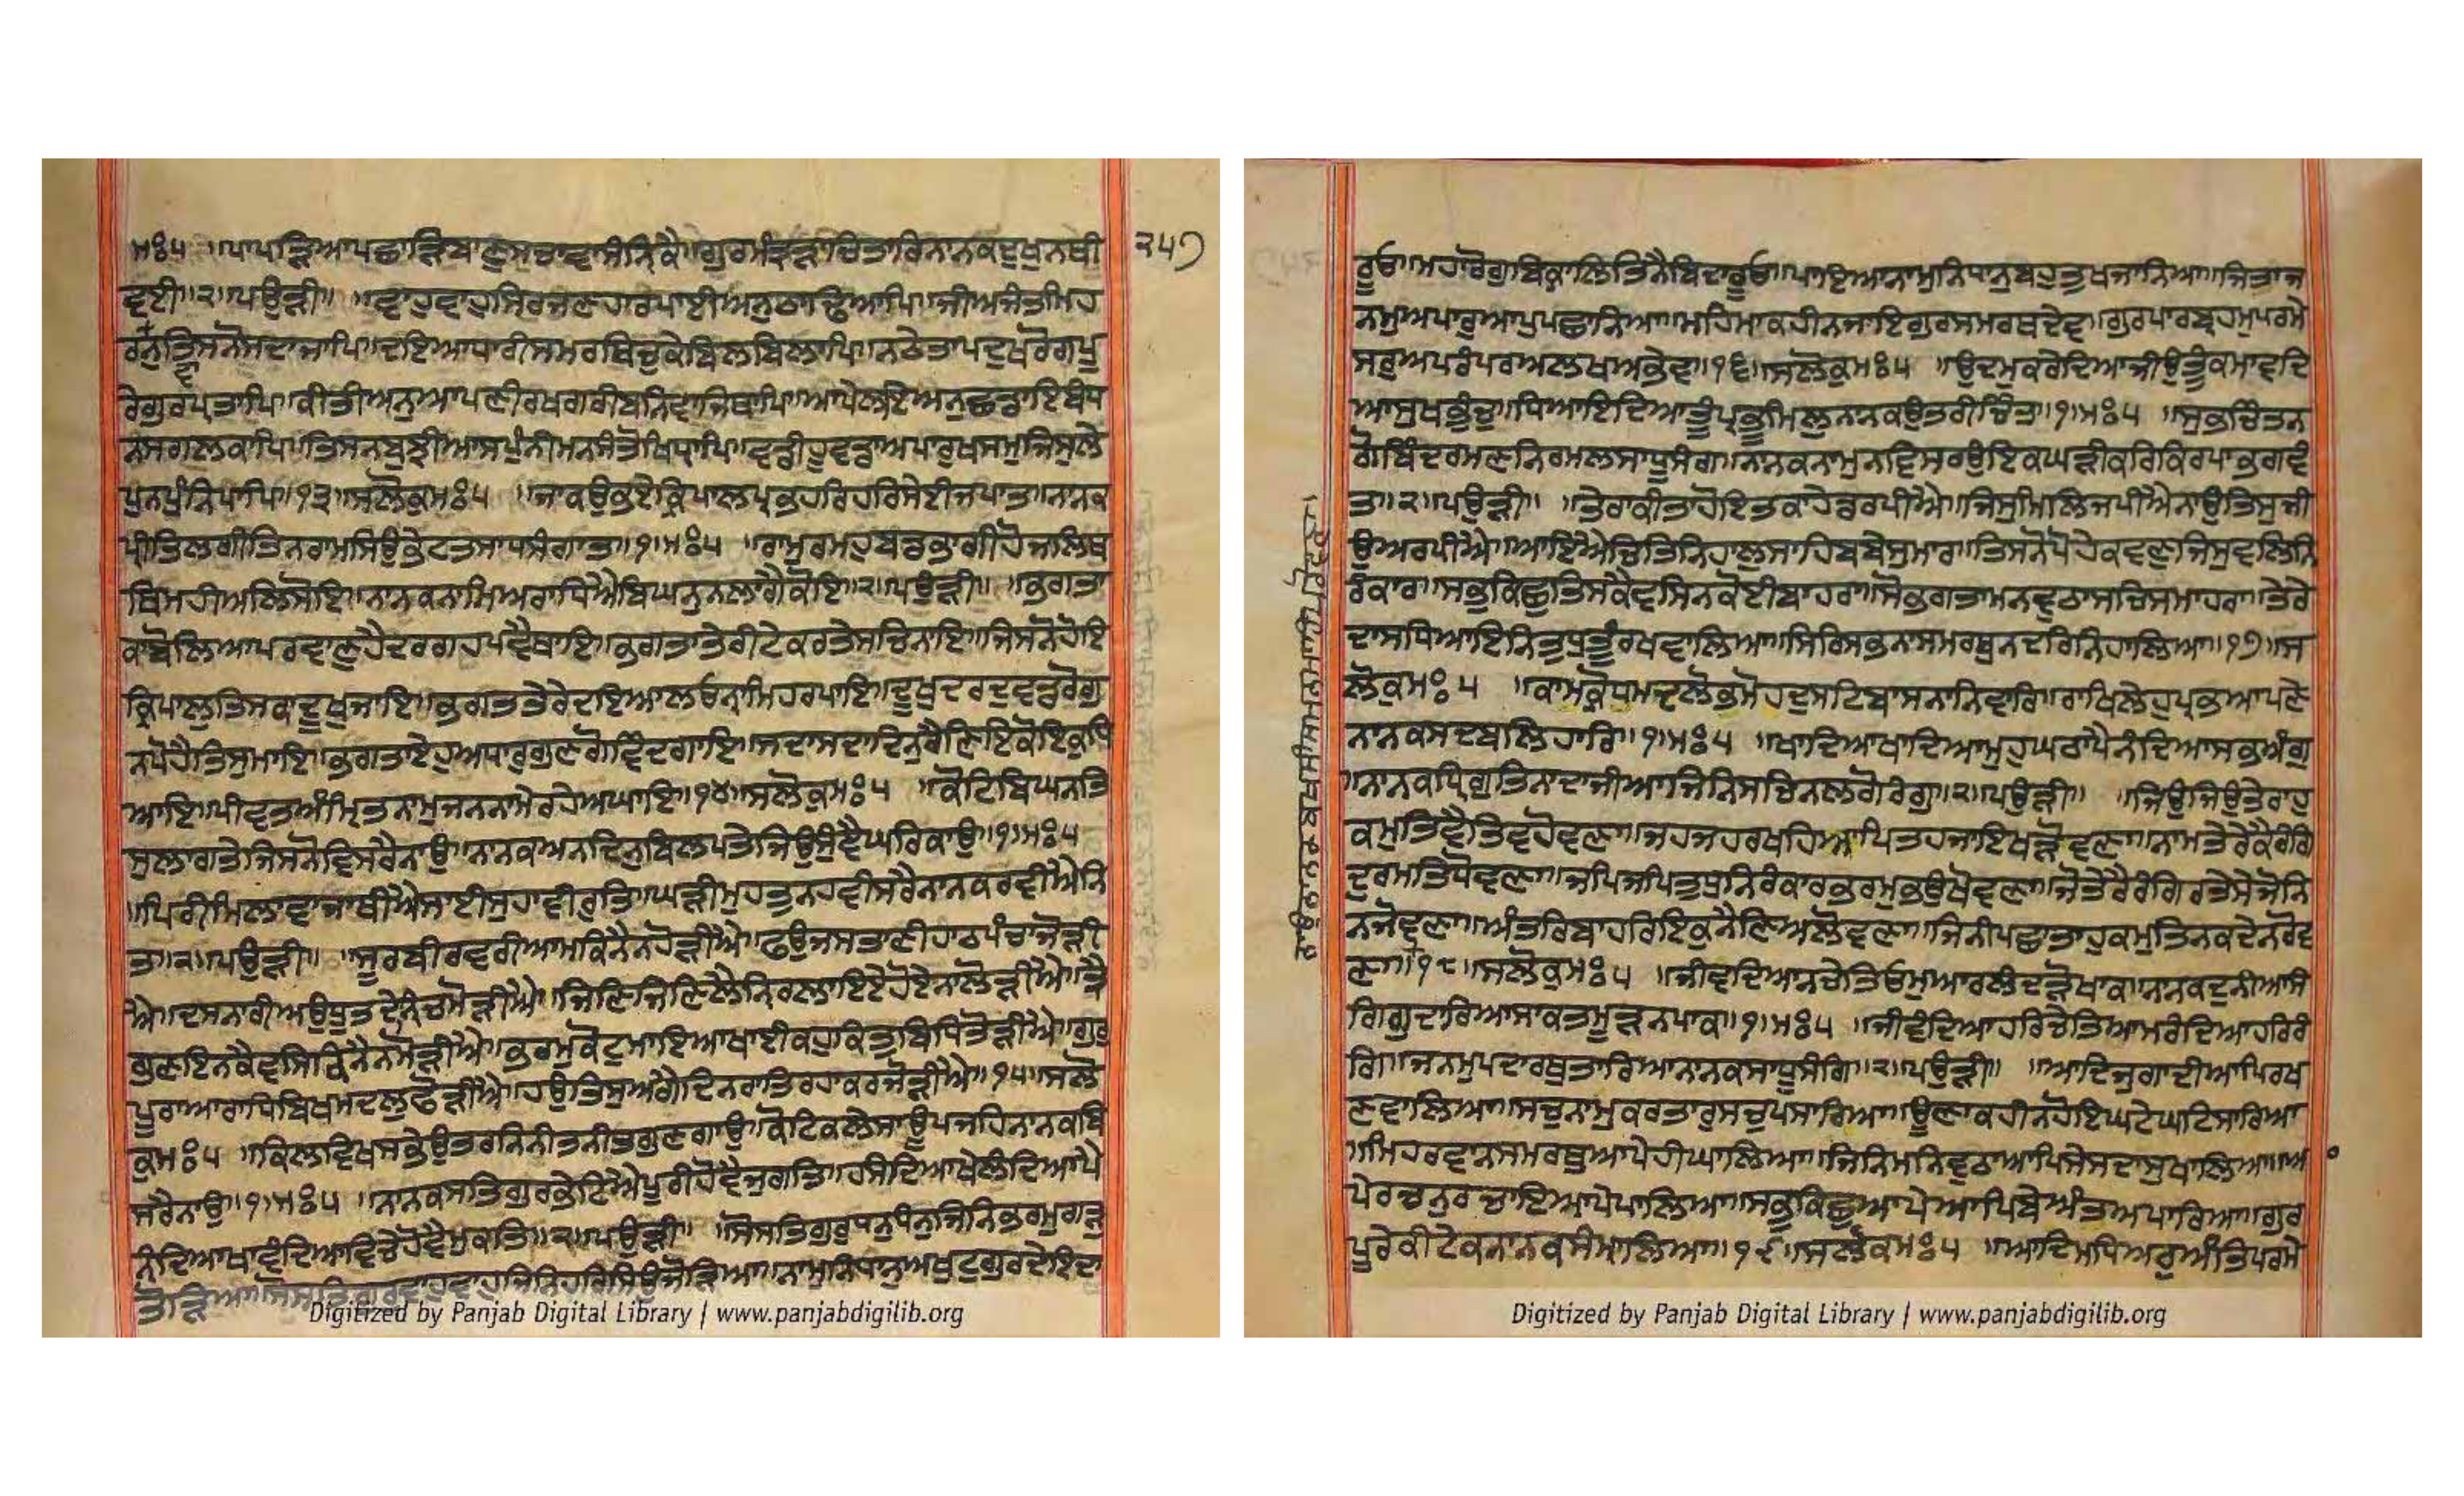 ਮਃ੫ ॥ਪਾਪੜਿਆਪਛਾੜਿਬਾਣੁਸਚਾਵਾਸੰਨਿੑਕੈ॥ਗੁਰਮੰਤ੍ਰੜਾਚਿਤਾਰਿਨਾਨਕਦੁਖੁਨਥੀ
੨੫੭
ਵਈ॥੨॥ਪਉੜੀ॥ ॥ਵਾਹੁਵਾਹੁਸਿਰਜਣਹਾਰਪਾਈਅਨੁਠਾਢਿਆਪਿ॥ਜੀਅਜੰਤਮਿਹ
ਰਵਾਨੁਤਿਸਨੋਸਦਾਜਾਪਿ॥ਦਇਆਧਾਰੀਸਮਰਥਿਚੁਕੇਬਿਲਬਿਲਾਪਿ॥ਨਠੇਤਾਪਦੁਖਰੋਗਪੂ
ਰੇਗੁਰਪਤਾਪਿ॥ਕੀਤੀਅਨੁਆਪਣੀਰਖਗਰੀਬਨਿਵਾਜਿਥਾਪਿ॥ਆਪੇਲਇਅਨੁਛਡਾਇਬੰਧ
ਨਸਗਲਕਾਪਿ॥ਤਿਸਨਬੁਝੀਆਸਪੁੰਨੀਮਨਸੰਤੋਖਿਧ੍ਰਾਪਿ॥ਵਡੀਹੂਵਡਾਅਪਾਰੁਖਸਮੁਜਿਸੁਲੇ
ਪੁਨਪੁੰਨਿਪਾਪਿ॥੧੩॥ਸਲੋਕੁਮਃ੫ ॥ਜਾਕਉਭਏਕ੍ਰਿਪਾਲਪ੍ਰਭਹਰਿਹਰਿਸੇਈਜਪਾਤ॥ਨਾਨਕ
ਪ੍ਰੀਤਿਲਗੀਤਿਨਰਾਮਸਿਉਭੇਟਤਸਾਧਸੰਗਾਤ॥੧॥ਮਃ੫ ॥ਰਾਮੁਰਮਹੁਬਡਭਾਗੀਹੋਜਲਿਥ
ਲਿਮਹੀਅਲਿਸੋਇ॥ਨਾਨਕਨਾਮਿਅਰਾਧਿਐਬਿਘਨੁਨਲਾਗੈਕੋਇ॥੨॥ਪਉੜੀ॥ ॥ਭਗਤਾ
ਕਾਬੋਲਿਆਪਰਵਾਣੁਹੈਦਰਗਹਪਵੈਥਾਇ॥ਭਗਤਾਤੇਰੀਟੇਕਰਤੇਸਚਿਨਾਇ॥ਜਿਸਨੋਹੋਇ
ਕ੍ਰਿਪਾਲੁਤਿਸਕਾਦੂਖੁਜਾਇ॥ਭਗਤਤੇਰੇਦਇਆਲਓਨ੍ਹਾਮਿਹਰਪਾਇ॥ਦੂਖੁਦਰਦੁਵਡਰੋਗੁ
ਨਪੋਹੈਤਿਸੁਮਾਇ॥ਭਗਤਾਏਹੁਅਧਾਰੁਗੁਣਗੋਵਿੰਦਗਾਇ॥ਸਦਾਸਦਾਦਿਨੁਰੈਣਿਇਕੋਇਕੁਧਿ
ਆਇ॥ਪੀਵਤਅੰਮ੍ਰਿਤਨਾਮੁਜਨਨਾਮੇਰਹੇਅਘਾਇ॥੧੪॥ਸਲੋਕੁਮਃ੫ ॥ਕੋਟਿਬਿਘਨਤਿ
ਸੁਲਾਗਤੇਜਿਸਨੋਵਿਸਰੈਨਾਉ॥ਨਾਨਕਅਨਦਿਨੁਬਿਲਪਤੇਜਿਉਸੁੰਞੈਘਰਿਕਾਉ॥੧॥ਮਃ੫
॥ਪਿਰੀਮਿਲਾਵਾਜਾਥੀਐਸਾਈਸੁਹਾਵੀਰੁਤਿ॥ਘੜੀਮੁਹਤੁਨਹਵੀਸਰੈਨਾਨਕਰਵੀਐਨਿ
ਤ॥੨॥ਪਉੜੀ॥ ॥ਸੂਰਬੀਰਵਰੀਆਮਕਿਨੈਨਹੋੜੀਐ॥ਫਉਜਸਤਾਣੀਹਾਠਪੰਚਾਜੋੜੀ
ਐ॥ਦਸਨਾਰੀਅਉਧੂਤਦੇਨਿਚਮੋੜੀਐ॥ਜਿਣਿਜਿਣਿਲੈਨਿਰਲਾਇਏਹੋਏਨਾਲੋੜੀਐ॥ਤ੍ਰੈ
ਗੁਣਇਨਕੈਵਸਿਕਿਨੈਨਮੋੜੀਐ॥ਭਰਮੁਕੋਟੁਮਾਇਆਖਾਈਕਹੁਕਿਤੁਬਿਧਿਤੋੜੀਐ॥ਗੁਰੁ
ਪੂਰਾਆਰਾਧਿਬਿਖਮਦਲੁਫੋੜੀਐ॥ਹਉਤਿਸੁਅਗੈਦਿਨਰਾਤਿਰਹਾਕਰਜੋੜੀਐ॥੧੫॥ਸਲੋ
ਕੁਮਃ੫ ॥ਕਿਲਵਿਖਸਭੇਉਤਰਨਿਨੀਤਨੀਤਗੁਣਗਾਉ॥ਕੋਟਿਕਲੇਸਾਊਪਜਹਿਨਾਨਕਬਿ
ਸਰੈਨਾਉ॥੧॥ਮਃ੫ ॥ਨਾਨਕਸਤਿਗੁਰਭੇਟਿਐਪੂਰੀਹੋਵੈਜੁਗਤਿ॥ਹਸੰਦਿਆਖੇਲੰਦਿਆਪੈ
ਨੰਦਿਆਖਾਵੰਦਿਆਵਿਚੇਹੋਵੈਮੁਕਤਿ॥੨॥ਪਉੜੀ॥ ॥ਸੋਸਤਿਗੁਰੁਧਨੁਧੰਨੁਜਿਨਿਭਰਮੁਗੜੁ
ਤੋੜਿਆ॥ਸੋਸਤਿਗੁਰੁਵਾਹੁਵਾਹੁਜਿਨਿਹਰਿਸਿਉਜੋੜਿਆ॥ਨਾਮੁਨਿਧਾਨੁਅਖੁਟੁਗੁਰਦੇਇਦਾ
Digitized by Panjab Digital Library | www.panjabdigilib.org
ਰੂਓ॥ਮਹਾਰੋਗੁਬਿਕ੍ਰਾਲਿਤਿਨੈਬਿਦਾਰੂਓ॥ਪਾਇਆਨਾਮੁਨਿਧਾਨੁਬਹੁਤੁਖਜਾਨਿਆ॥ਜਿਤਾਜ
ਨਮੁਅਪਾਰੁਆਪੁਪਛਾਨਿਆ॥ਮਹਿਮਾਕਹੀਨਜਾਇਗੁਰਸਮਰਥਦੇਵ॥ਗੁਰਪਾਰਬ੍ਰਹਮੁਪਰਮੇ
ਸਰੁਅਪਰੰਪਰਅਲਖਅਭੇਵ॥੧੬॥ਸਲੋਕੁਮਃ੫ ॥ਉਦਮੁਕਰੇਦਿਆਜੀਉਤੂੰਕਮਾਵਦਿ
ਆਸੁਖਭੁੰਚੁ॥ਧਿਆਇਦਿਆਤੂੰਪ੍ਰਭੂਮਿਲੁਨਾਨਕਉਤਰੀਚਿੰਤ॥੧॥ਮਃ੫ ॥ਸੁਭਚਿੰਤਨ
ਗੋਬਿੰਦਰਮਣਨਿਰਮਲਸਾਧੂਸੰਗ॥ਨਾਨਕਨਾਮੁਨਵਿਸਰਉਇਕਘੜੀਕਰਿਕਿਰਪਾਭਗਵੰ
ਤ॥੨॥ਪਉੜੀ॥ ॥ਤੇਰਾਕੀਤਾਹੋਇਤਕਾਹੇਡਰਪੀਐ॥ਜਿਸੁਮਿਲਿਜਪੀਐਨਾਉਤਿਸੁਜੀ
ਉਅਰਪੀਐ॥ਆਇਐਚਿਤਿਨਿਹਾਲੁਸਾਹਿਬਬੇਸੁਮਾਰ॥ਤਿਸਨੋਪੋਹੇਕਵਣੁਜਿਸੁਵਲਿਨਿ
ਰੰਕਾਰ॥ਸਭੁਕਿਛੁਤਿਸਕੈਵਸਿਨਕੋਈਬਾਹਰਾ॥ਸੋਭਗਤਾਮਨਵੁਠਾਸਚਿਸਮਾਹਰਾ॥ਤੇਰੇ
ਦਾਸਧਿਆਇਨਿਤੁਧੁਤੂੰਰਖਵਾਲਿਆ॥ਸਿਰਿਸਭਨਾਸਮਰਥੁਨਦਰਿਨਿਹਾਲਿਆ॥੧੭॥ਸ
ਲੋਕੁਮਃ੫ ॥ਕਾਮਕ੍ਰੋਧਮਦਲੋਭਮੋਹਦੁਸਟਬਾਸਨਾਨਿਵਾਰਿ॥ਰਾਖਿਲੇਹੁਪ੍ਰਭਆਪਣੇ
ਨਾਨਕਸਦਬਲਿਹਾਰਿ॥੧॥ਮਃ੫ ॥ਖਾਂਦਿਆਖਾਂਦਿਆਮੁਹੁਘਠਾਪੈਨੰਦਿਆਸਭੁਅੰਗੁ
॥ਨਾਨਕਧ੍ਰਿਗੁਤਿਨਾਦਾਜੀਆਜਿਨਿਸਚਿਨਲਗੋਰੰਗੁ॥੨॥ਪਉੜੀ॥ ॥ਜਿਉਜਿਉਤੇਰਾਹੁ
ਕਮੁਤਿਵੈਤਿਵਹੋਵਣਾ॥ਜਹਜਹਰਖਹਿਆਪਿਤਹਜਾਇਖੜੋਵਣਾ॥ਨਾਮਤੇਰੇਕੈਰੰਗਿ
ਦੁਰਮਤਿਧੋਵਣਾ॥ਜਪਿਜਪਿਤੁਧੁਨਿਰੰਕਾਰਭਰਮੁਭਉਖੋਵਣਾ॥ਜੋਤੇਰੈਰੰਗਿਰਤੇਸੇਜੋਨਿ
ਨਜੋਵਣਾ॥ਅੰਤਰਿਬਾਹਰਿਇਕੁਨੈਣਿਅਲੋਵਣਾ॥ਜਿਨੀਪਛਾਤਾਹੁਕਮੁਤਿਨਕਦੇਨਰੋਵ
ਣਾ॥੧੮॥ਸਲੋਕੁਮਃ੫ ॥ਜੀਵਦਿਆਨਚੇਤਿਓਮੁਆਰਲੰਦੜੋਖਾਕ॥ਨਾਨਕਦੁਨੀਆਸੰ
ਗਿਗੁਦਾਰਿਆਸਾਕਤਮੂੜਨਪਾਕ॥੧॥ਮਃ੫ ॥ਜੀਵੰਦਿਆਹਰਿਚੇਤਿਆਮਰੰਦਿਆਹਰਿਰੰ
ਗਿ॥ਜਨਮੁਪਦਾਰਥੁਤਾਰਿਆਨਾਨਕਸਾਧੂਸੰਗਿ॥੨॥ਪਉੜੀ॥ ॥ਆਦਿਜੁਗਾਦੀਆਪਿਰਖ
ਣਵਾਲਿਆ॥ਸਚੁਨਾਮੁਕਰਤਾਰੁਸਚੁਪਸਾਰਿਆ॥ਊਣਾਕਹੀਨਹੋਇਘਟੇਘਟਿਸਾਰਿਆ
॥ਮਿਹਰਵਾਨਸਮਰਥੁਆਪੇਹੀਘਾਲਿਆ॥ਜਿਨਿਮਨਿਵੁਠਾਆਪਿਸੇਸਦਾਸੁਖਾਲਿਆ॥ਆ
ਪੇਰਚਨੁਰਚਾਇਆਪੇਪਾਲਿਆ॥ਸਭੁਕਿਛੁਆਪੇਆਪਿਬੇਅੰਤਅਪਾਰਿਆ॥ਗੁਰ
ਪੂਰੇਕੀਟੇਕਨਾਨਕਸੰਮਾਲਿਆ॥੧੯॥ਸਲੋਕੁਮਃ੫ ॥ਆਦਿਮਧਿਅਰੁਅੰਤਿਪਰਮੇ
Digitized by Panjab Digital Library | www.panjabdigilib.org